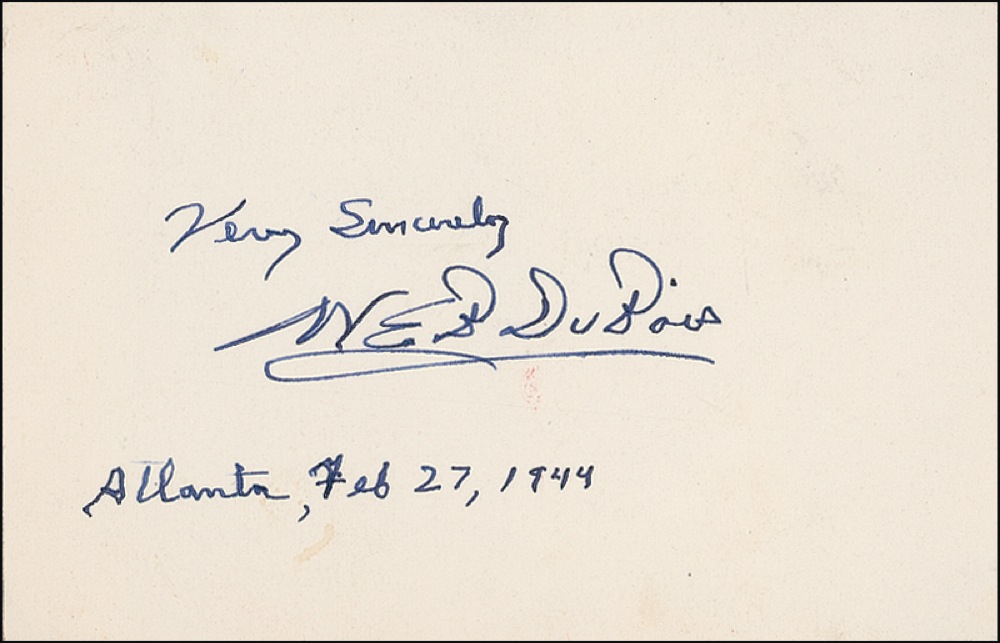 Very Sincerely
W E B DuBois
Atlanta, Feb 27, 1944